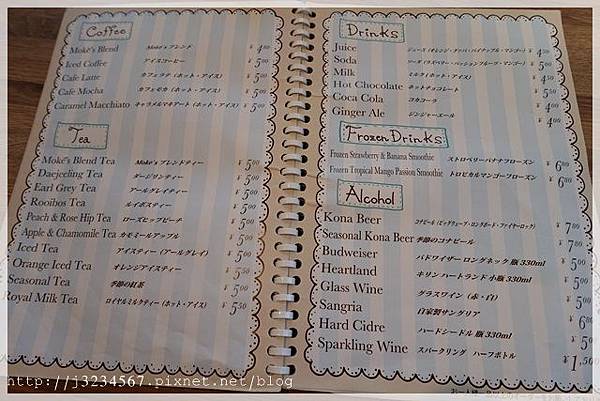 Coffee
Moké's Blend Moke'sブレンド ¥ 450
Iced Coffee アイスコーヒー ¥ 500
Cafe Latte カフェラテ (ホット・アイス) ¥ 500
Cafe Mocha カフェモカ (ホット・アイス) ¥ 500
Caramel Macchiato キャラメルマキアート (ホット・アイス) ¥ 500
Tea
Moké's Blend Tea Moke'sブレンドティー ¥ 500
Daejeeling Tea ダージリンティー ¥ 500
Earl Grey Tea アールグレイティー ¥ 500
Rooibos Tea ルイボスティー ¥ 500
Peach & Rose Hip Tea ローズヒップピーチ ¥ 500
Apple & Chamomile Tea カモミールアップル ¥ 500
Iced Tea アイスティー (アールグレイ) ¥ 500
Orange Iced Tea オレンジアイスティー ¥ 550
Seasonal Tea 季節の紅茶 ¥ 500
Royal Milk Tea ロイヤルミルクティー (ホット・アイス) ¥ 550
Drinks
Juice ジュース (オレンジ・グァバ・パイナップル・マンゴー) ¥ 450
Soda ソーダ (ラズベリー・パッションフルーツ・マンゴー) ¥ 500
Milk ミルク (ホット・アイス) ¥ 450
Hot Chocolate ホットチョコレート ¥ 500
Coca Cola コカコーラ ¥ 400
Ginger Ale ジンジャーエール ¥ 400
Frozen Drinks
Frozen Strawberry & Banana Smoothie ストロベリーバナナフローズン ¥ 680
Frozen Tropical Mango Passion Smoothie トロピカルマンゴーフローズン ¥ 680
Alcohol
Kona Beer コナビール (ビッグウェーブ・ロングボード・ファイヤーロック) ¥ 780
Seasonal Kona Beer 季節のコナビール ¥ 780
Budweiser バドワイザー ロングネック 瓶 330ml ¥ 500
Heartland キリン ハートランド 小瓶 330ml ¥ 500
Glass Wine グラスワイン (赤・白) ¥ 500
Sangria 自家製サングリア ¥ 680
Hard Cidre ハードシードル 瓶 330ml ¥ 500
Sparkling Wine スパークリング ハーフボトル ¥ 1,500
http://j3234567.pixnet.net/blog